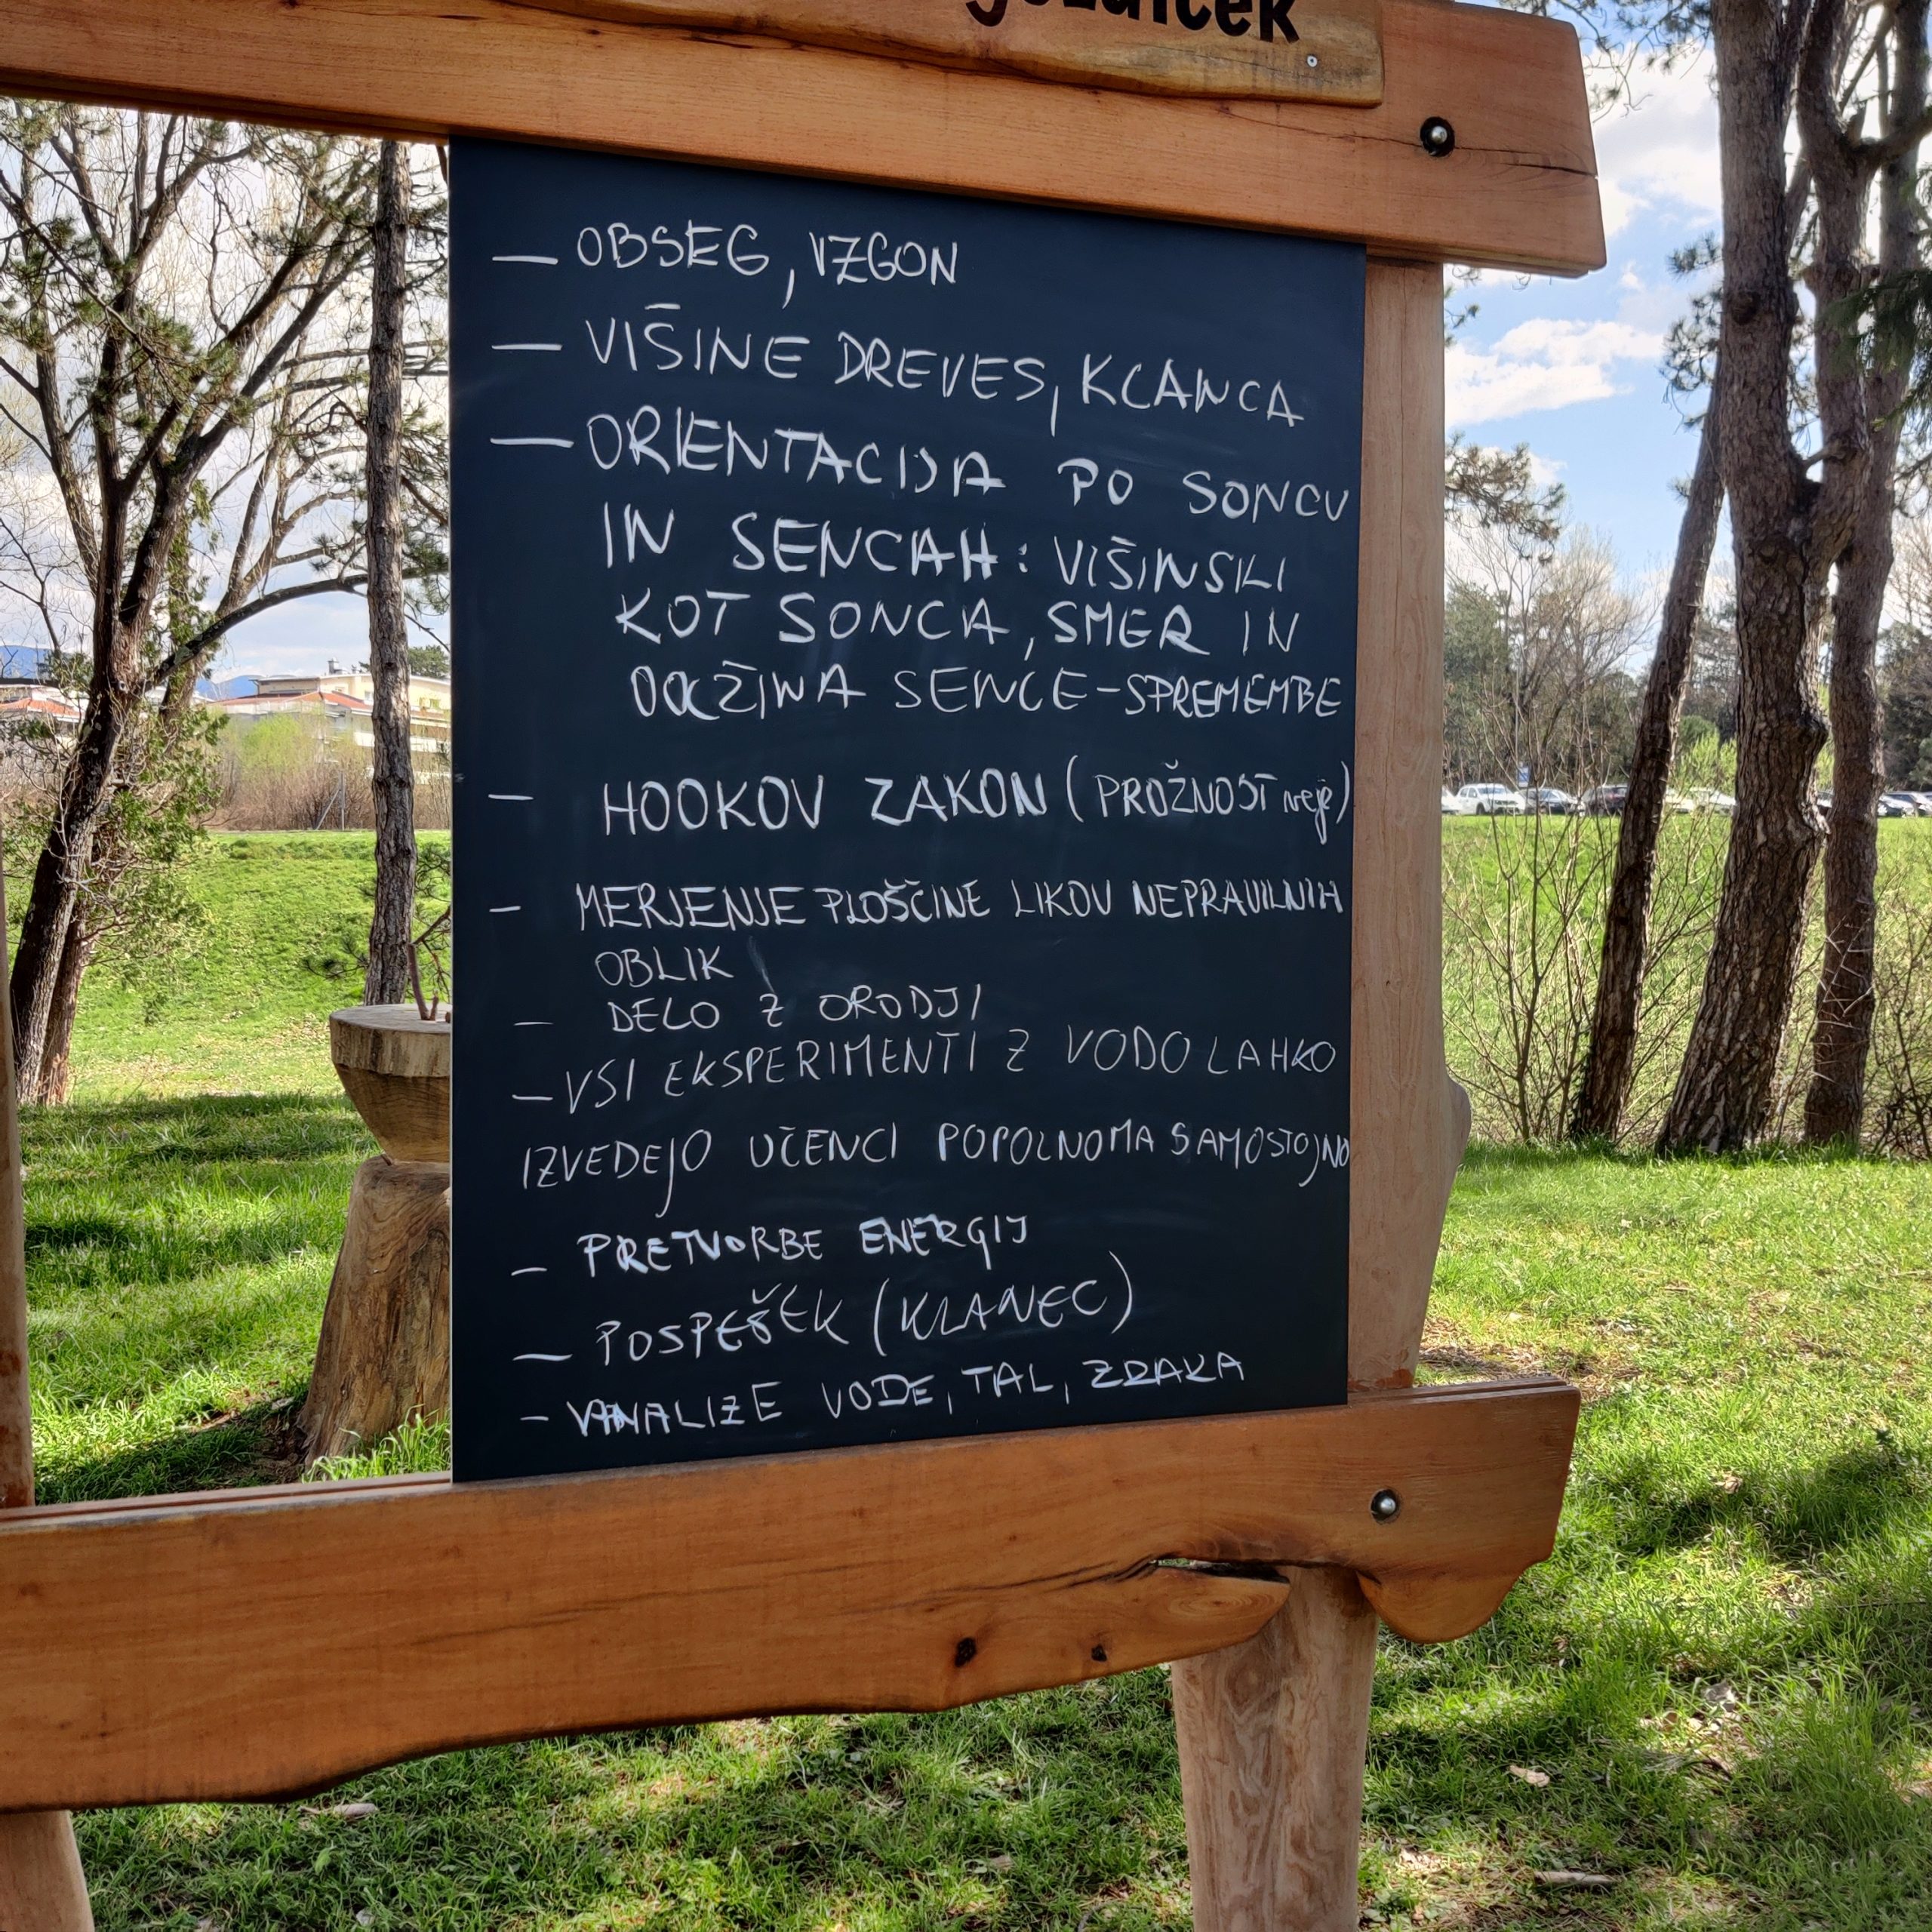 gozdiček
— OBSEG, VZGON
— VIŠINE DREVES, KLANCA
— ORIENTACIJA PO SONCU
IN SENCAH: VIŠINSKI
KOT SONCA, SMER IN
DOLŽINA SENCE - SPREMEMBE
- HOOKOV ZAKON (PROŽNOST veje)
- MERJENJE PLOŠČINE LIKOV NEPRAVILNIH
OBLIK
- DELO Z ORODJI
- VSI EKSPERIMENTI Z VODO LAHKO
IZVEDEJO UČENCI POPOLNOMA SAMOSTOJNO
- PRETVORBE ENERGIJ
- POSPEŠEK (KLANEC)
- ANALIZE VODE, TAL, ZRAKA